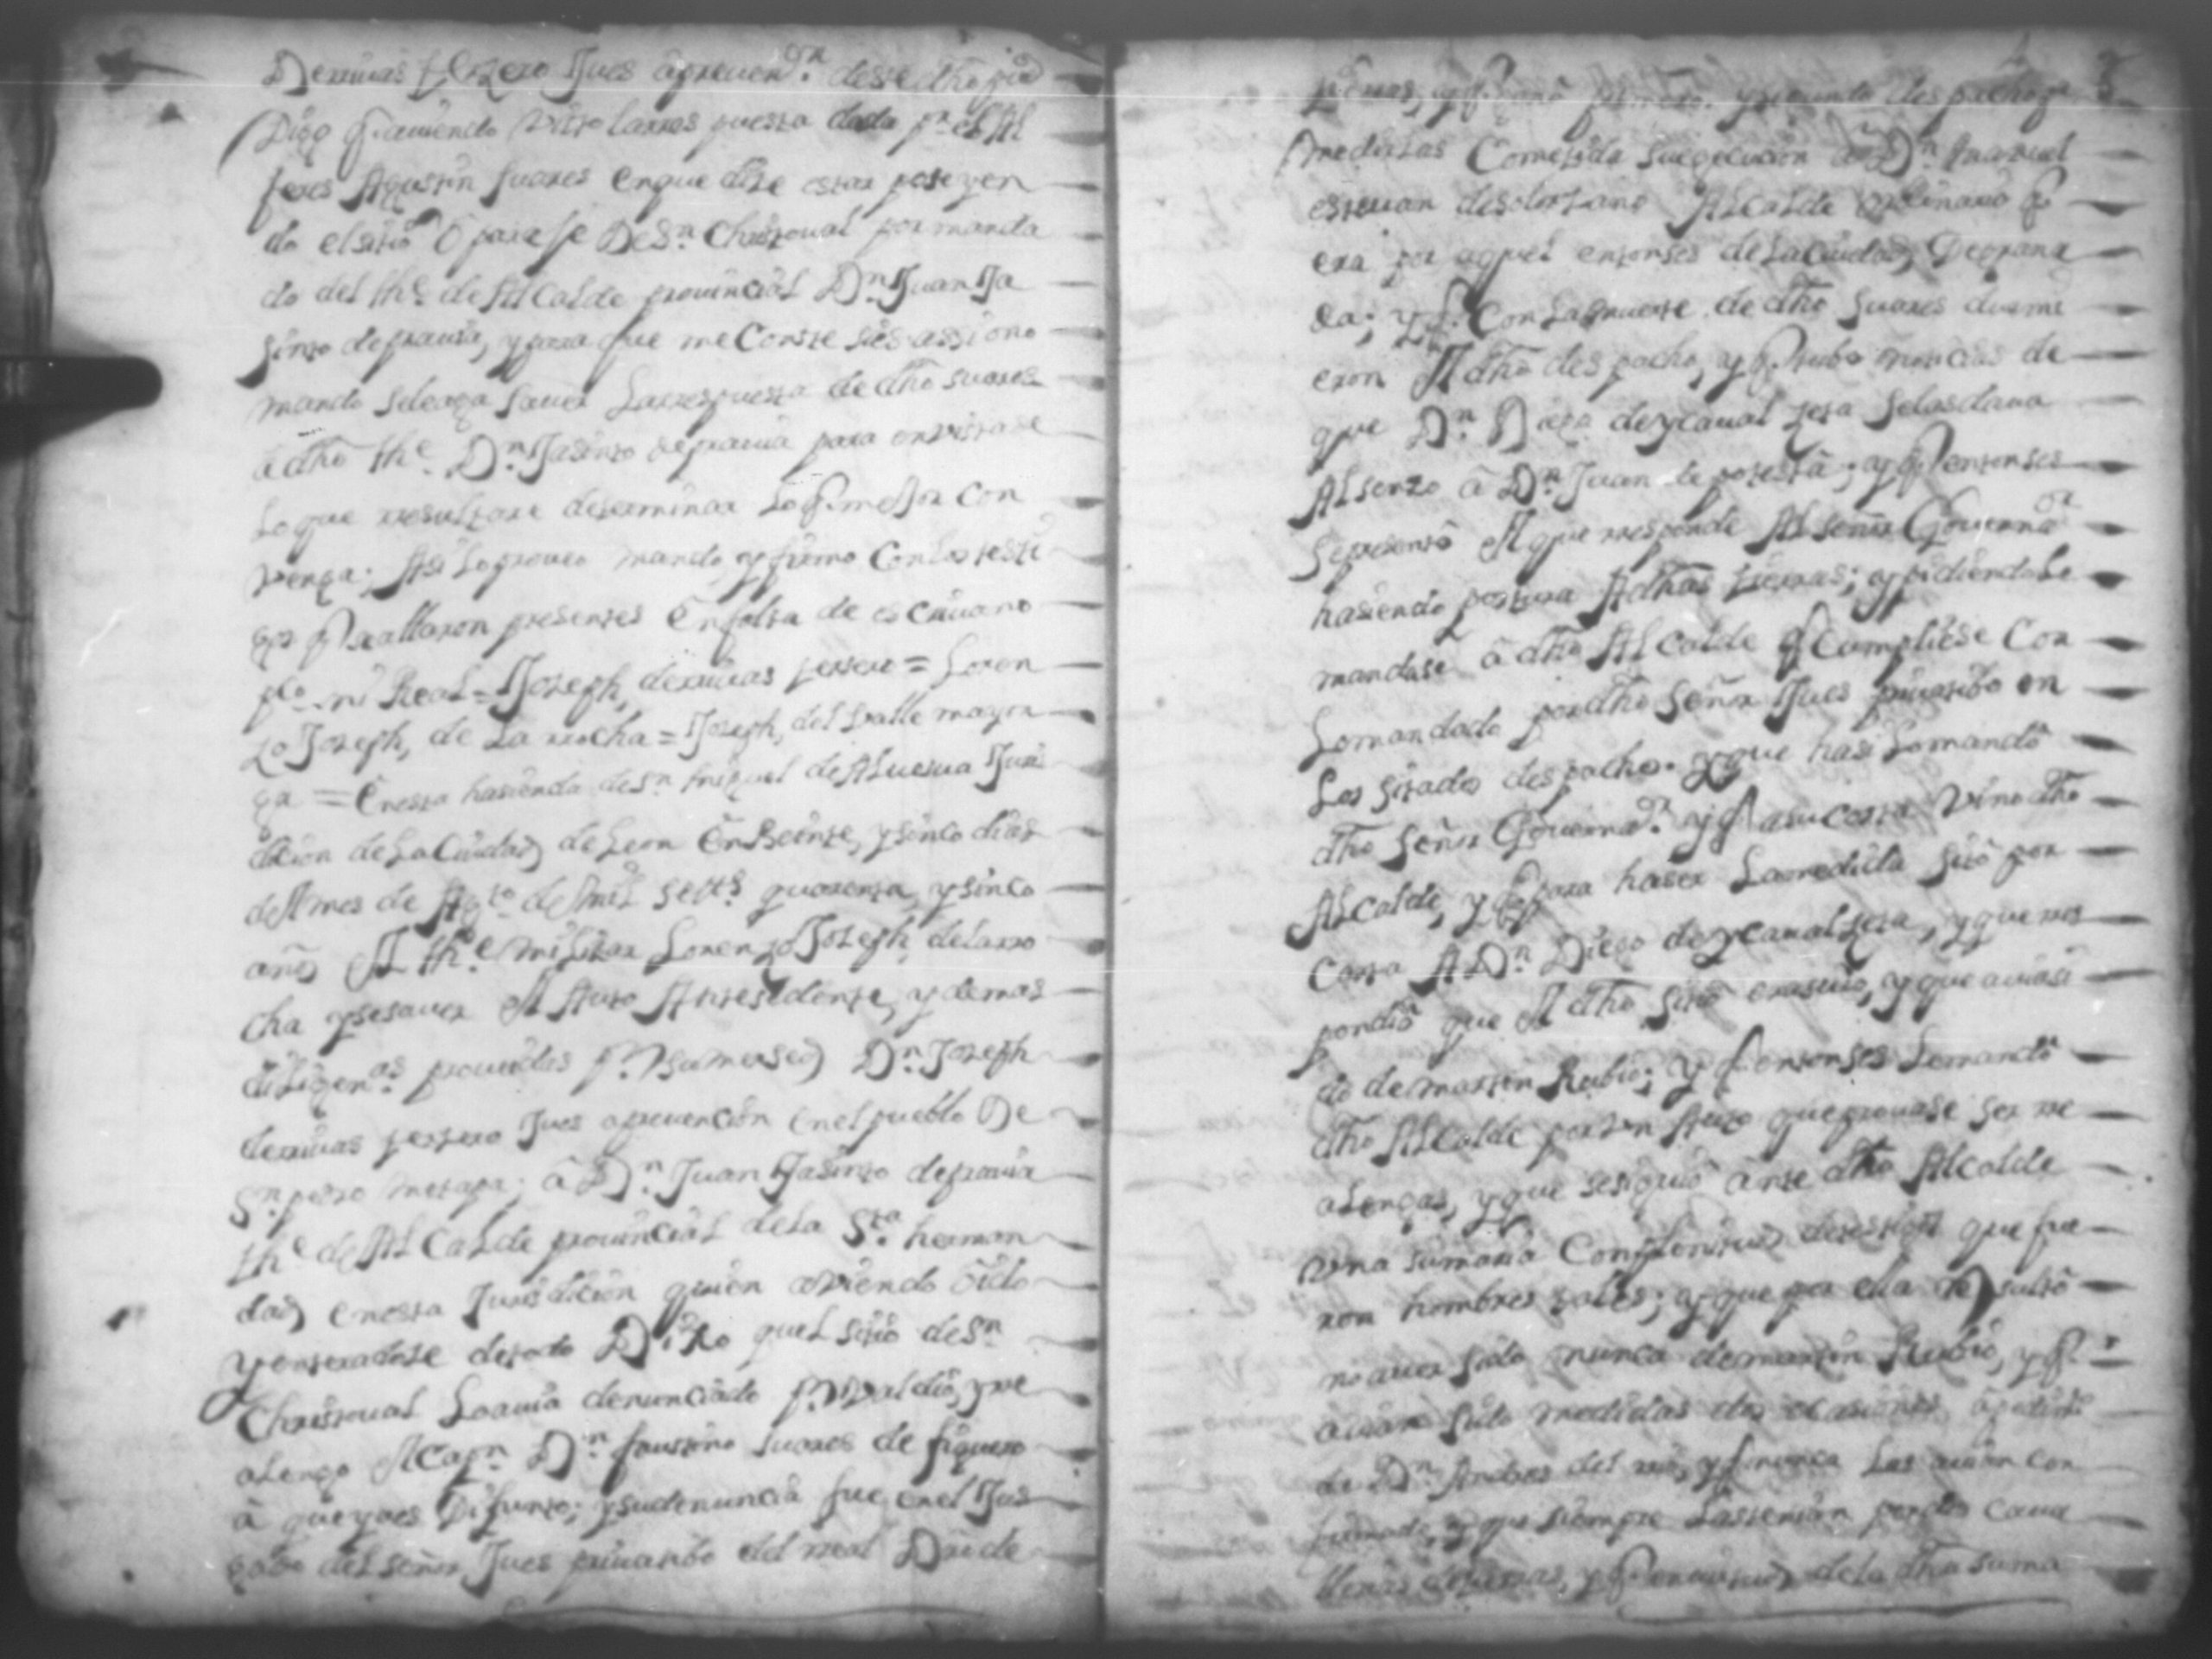 Derriuas terzero Jues apreuen.on deste dho pueo
Digo q. auiendo visto la rres puesta dada p.r el Al
feres Agustin suares en que dize estar poseyen
do el sitio o paraje De S.n Christoual por manda
do del th.e de Al Calde prouincial D.n Juan Ja
sinto de prauia, y para que me Conste ser assi ono
mando sele aga sauer La rrespuesta de dho suares
a dho th.e D.n Jasinto de prauia para en vista de
Lo que rresultare determinar Lo q. mejor Con
venga; Asi Lo proueo mando y firmo Con los testi
gos q. se allaron presentes En falta de escriuano
pco ni Real = Joseph, derriuas tersero = Loren
zo Joseph, de La rrocha = Joseph, del valle mayor
ga = En esta hasienda de S.n miguel de Aluerua Juris
dicion de La Ciudad de Leon En Beinte, y sinco dias
del mes de Ag.to de mil sett.s quarenta, y sinco
años El th.e militar Lorenzo Joseph, de la rro
cha yse sauer El Auto Antesedente, y demas
diligen.as proueidas p.r su merced D.n Joseph
derriuas tersero Jues apreuencion en el pueblo De
S.n pedro metapa; â D.n Juan Jasinto de prauia
th.e de Al Calde prouincial de La S.ta herman
dad en esta Jurisdicion quien aviendo oido
y enteradose de todo Dixo quel sitio de S.n
Christoual Lo auia denunciado p.r valdio, y rre
alengo el Cap.n D.n faustino suares de figuero
a que yaes Difunto; y su denuncia fue en el Jus
gado del señor Jues priuatibo del real Dro de
tierras, y q. gano primero y segundo despacho p.a
medirlas Cometida su execucion a D.n manuel
esteuan de solorsano Alcalde ordinario q.
era por aquel entonses de La Ciudad De grana
da; y q. Con La muerte de dho suares durmi
eron El dho despacho, y q. tubo noticias de
que D.n Diego de ycaual zeta se las daua
Al senzo â D.n Juan de potesta; y q. entonses
se presento el que rresponde Al señor Gouerna.or
hasiendo postura A dhas tierras; y pidiendo Le
mandase â dho Al Calde q. Cumpliese Con
Lo mandado por dho señor Jues priuatibo en
Los sitados despachos. y que hasi Lo mando
dho señor Gouerna.or y q. a su costa vino dho
Alcalde, y q. para haser La medida sito por
Carta A D.n Diego de ycaualzeta, y que rres
pondio que El dho sitio era suio, y que auia si
do de martin Rubio; y q. entonses Le mando
dho Alcalde por vn Auto que prouase ser rre
alengas, y que se siguio ante dho Alcalde
vna sumaria Con plenitud de testigos que fue
ron hombres tales; y que por ella rresulto
no auer sido nunca de martin Rubio, y q.
auian sido medidas dos ocasiones â pedim.to
de D.n Andres del rrio, y q. nunca Las auian con
firmado, y que siempre Las tenian por dos Caua
llerias de tierras, y q. en uirtud de la dha suma